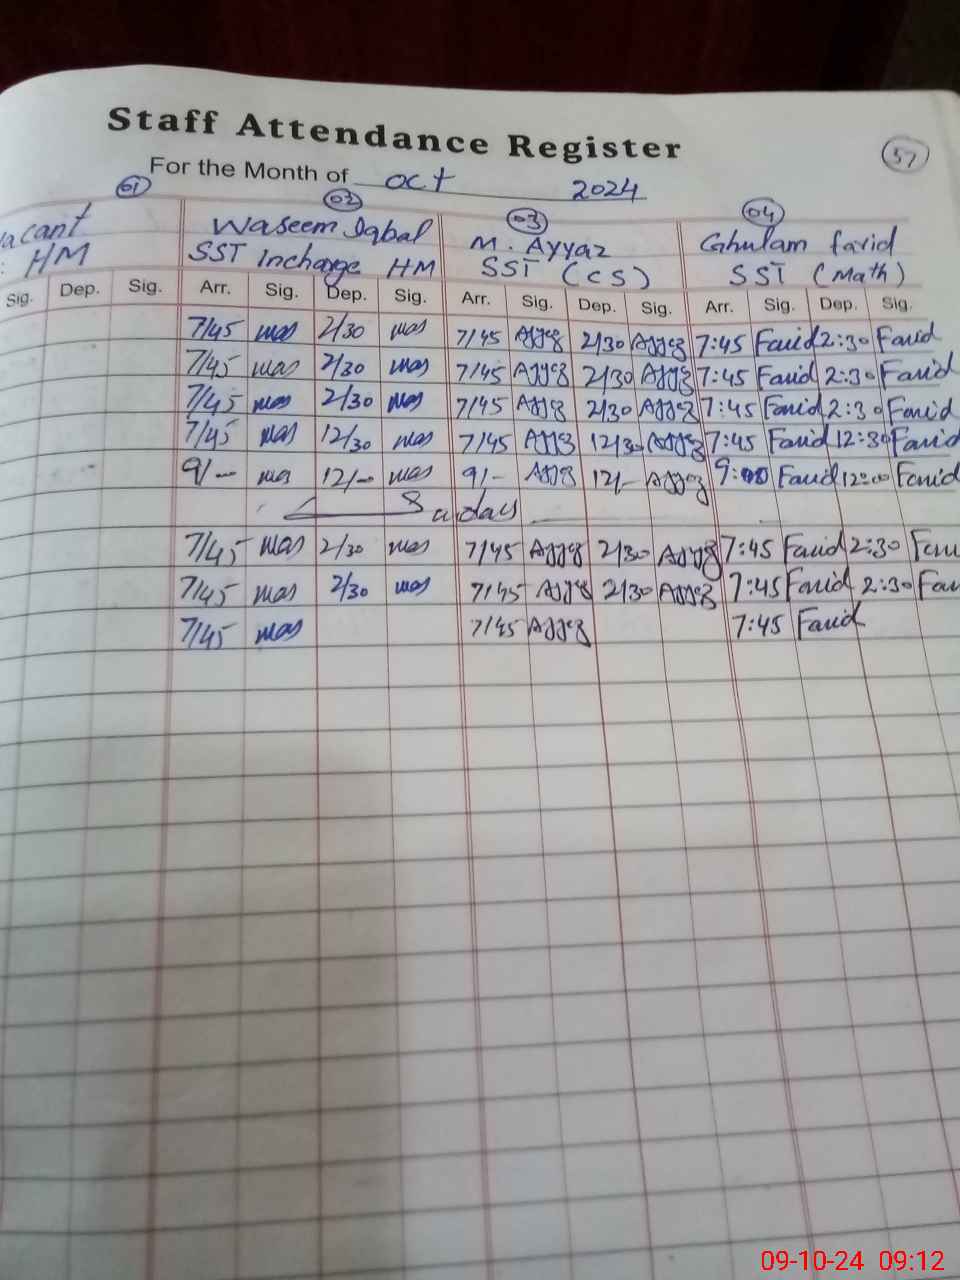 Staff Attendance Register
57
For the Month of oct 2024
01 02 03 04
vacant Waseem Iqbal M. Ayyaz Ghulam farid
HM SST Incharge HM SST (CS) SST (Math)
Sig. Dep. Sig. Arr. Sig. Dep. Sig. Arr. Sig. Dep. Sig. Arr. Sig. Dep. Sig.
7/45 was 2/30 was 7/45 Ayyaz 2/30 Ayyaz 7:45 Farid 2:30 Farid
7/45 was 2/30 was 7/45 Ayyaz 2/30 Ayyaz 7:45 Farid 2:30 Farid
7/45 was 2/30 was 7/45 Ayyaz 2/30 Ayyaz 7:45 Farid 2:30 Farid
7/45 was 12/30 was 7/45 Ayyaz 12/30 Ayyaz 7:45 Farid 12:30 Farid
9/— was 12/— was 9/- Ayyaz 12/- Ayyaz 9:00 Farid 12:00 Farid
Sunday
7/45 was 2/30 was 7/45 Ayyaz 2/30 Ayyaz 7:45 Farid 2:30 Fari
7/45 was 2/30 was 7/45 Ayyaz 2/30 Ayyaz 7:45 Farid 2:30 Far
7/45 was 7/45 Ayyaz 7:45 Farid
09-10-24 09:12